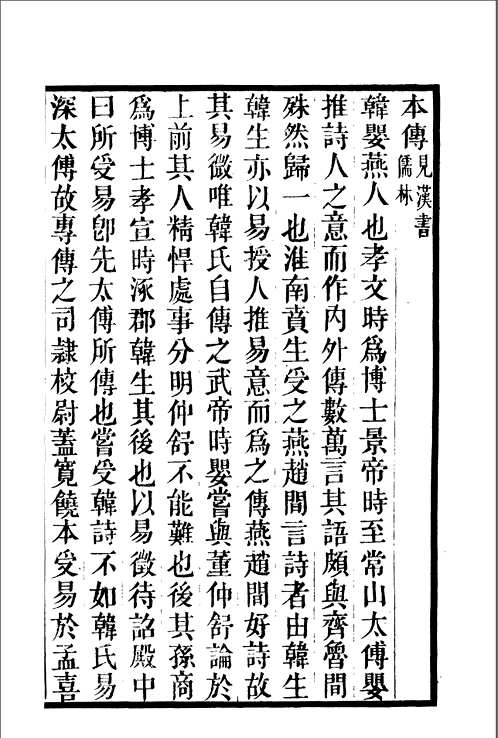 本傳見漢書儒林
韓嬰燕人也孝文時爲博士景帝時至常山太傅嬰
推詩人之意而作內外傳數萬言其語頗與齊魯間
殊然歸一也淮南賁生受之燕趙間言詩者由韓生
韓生亦以易授人推易意而爲之傳燕趙間好詩故
其易微唯韓氏自傳之武帝時嬰嘗與董仲舒論於
上前其人精悍處事分明仲舒不能難也後其孫商
爲博士孝宣時涿郡韓生其後也以易徵待詔殿中
曰所受易卽先太傅所傳也嘗受韓詩不如韓氏易
深太傅故專傳之司隷校尉蓋寬饒本受易於孟喜